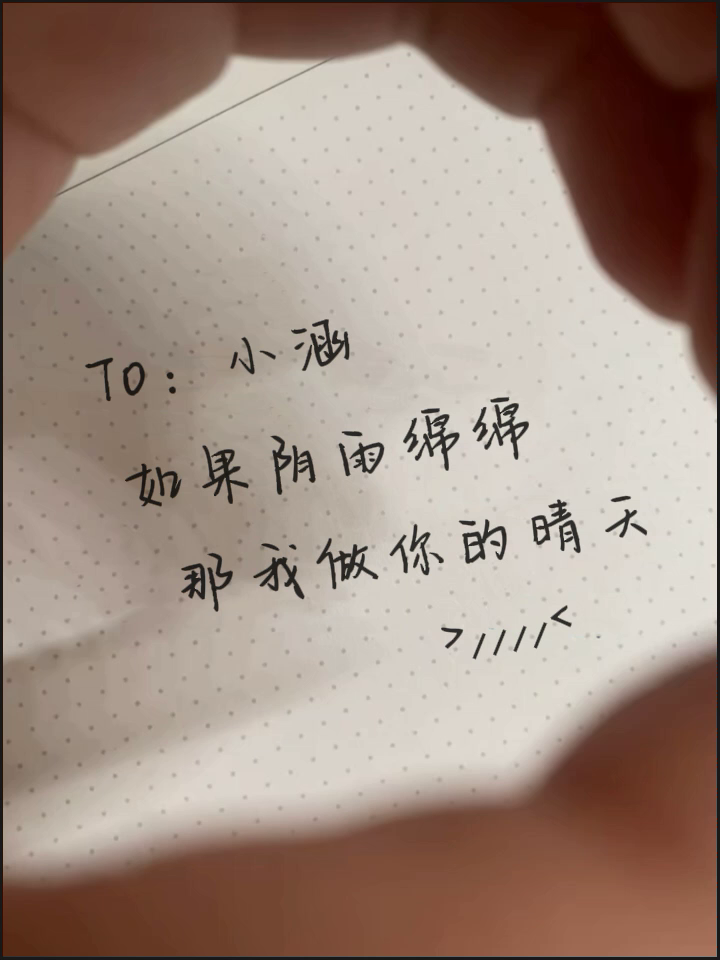 TO: 小涵
如果阴雨绵绵
那我做你的晴天
>////<